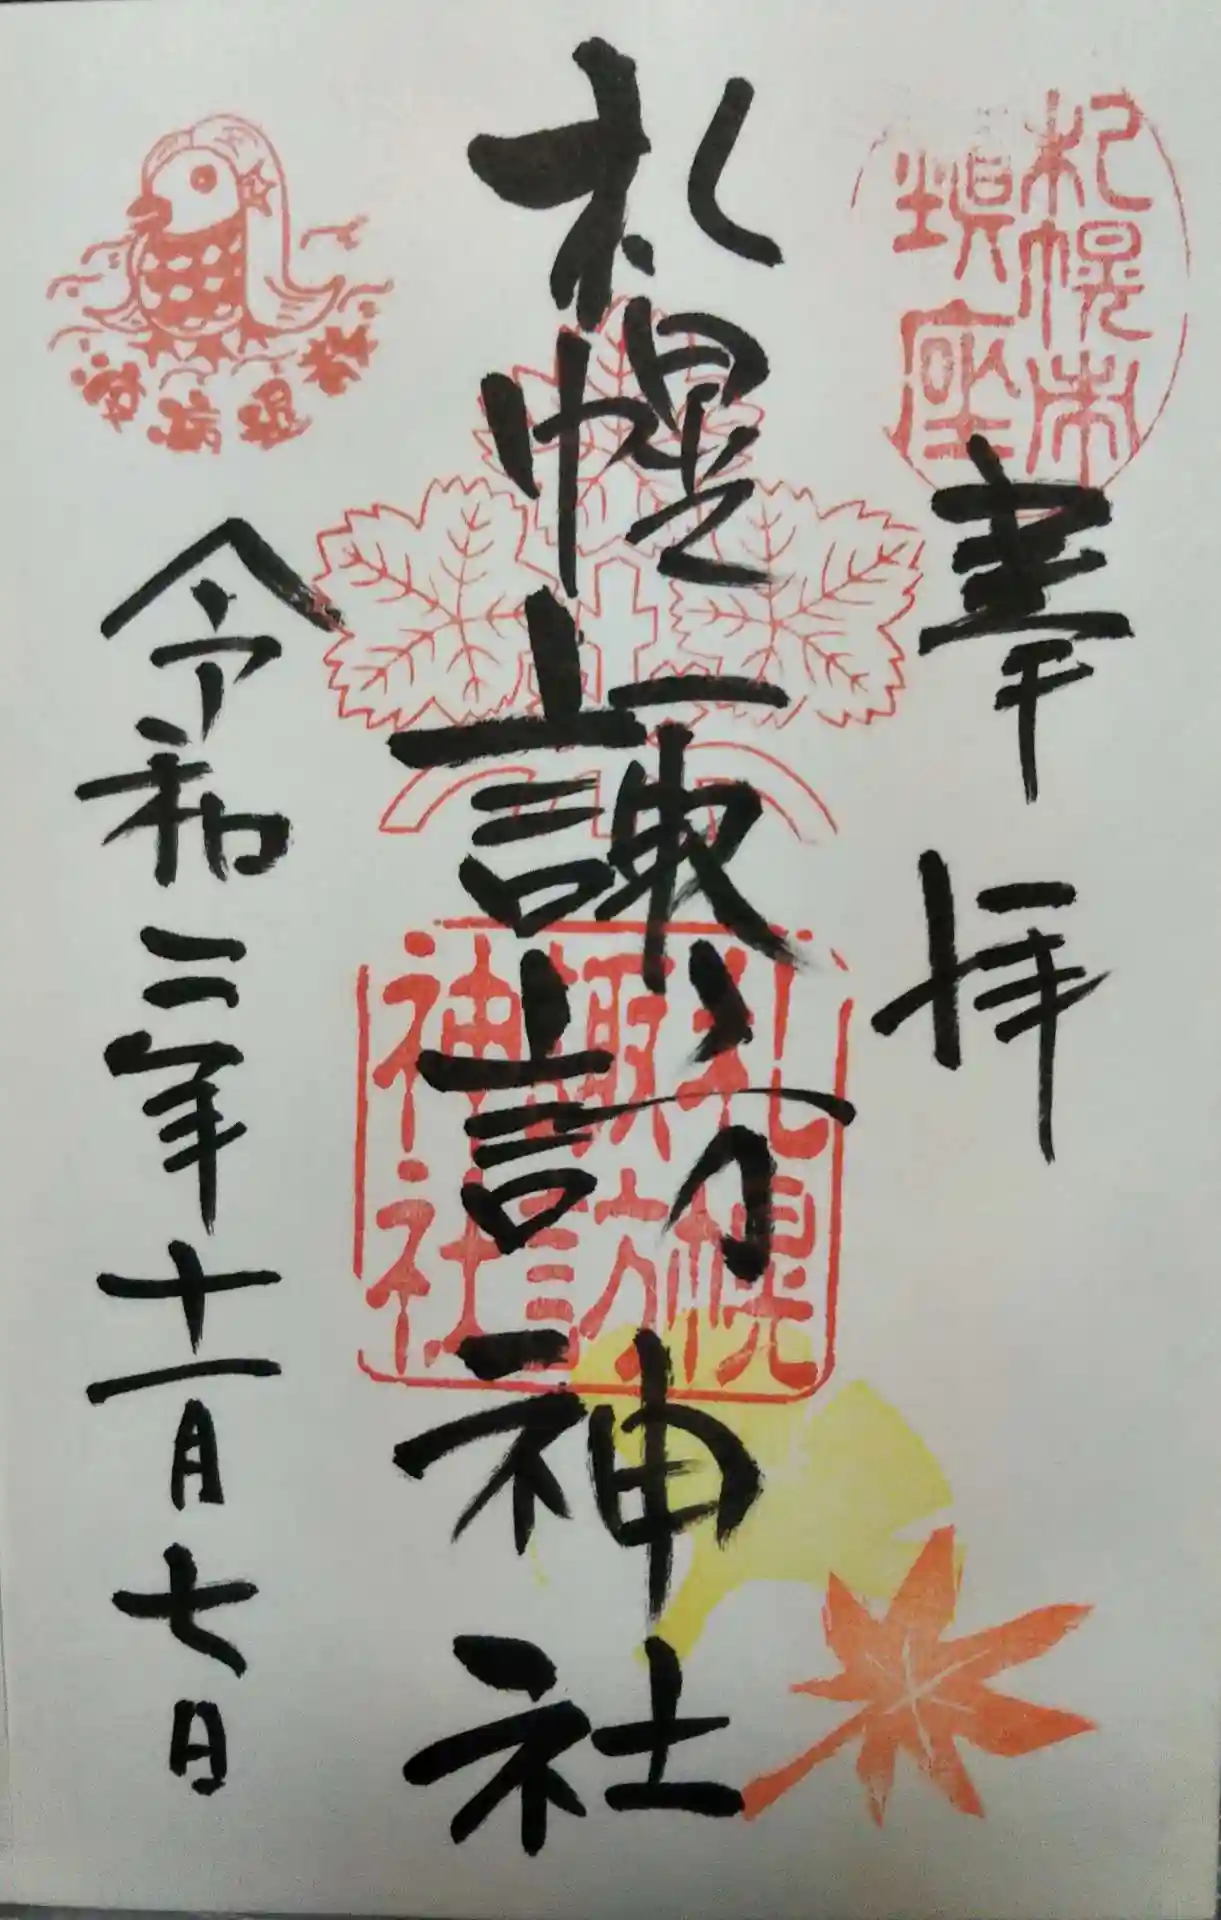 札幌市
鎮座
奉拝
札幌諏訪神社
札幌
諏訪
神社
令和三年十一月七日
疫病退散